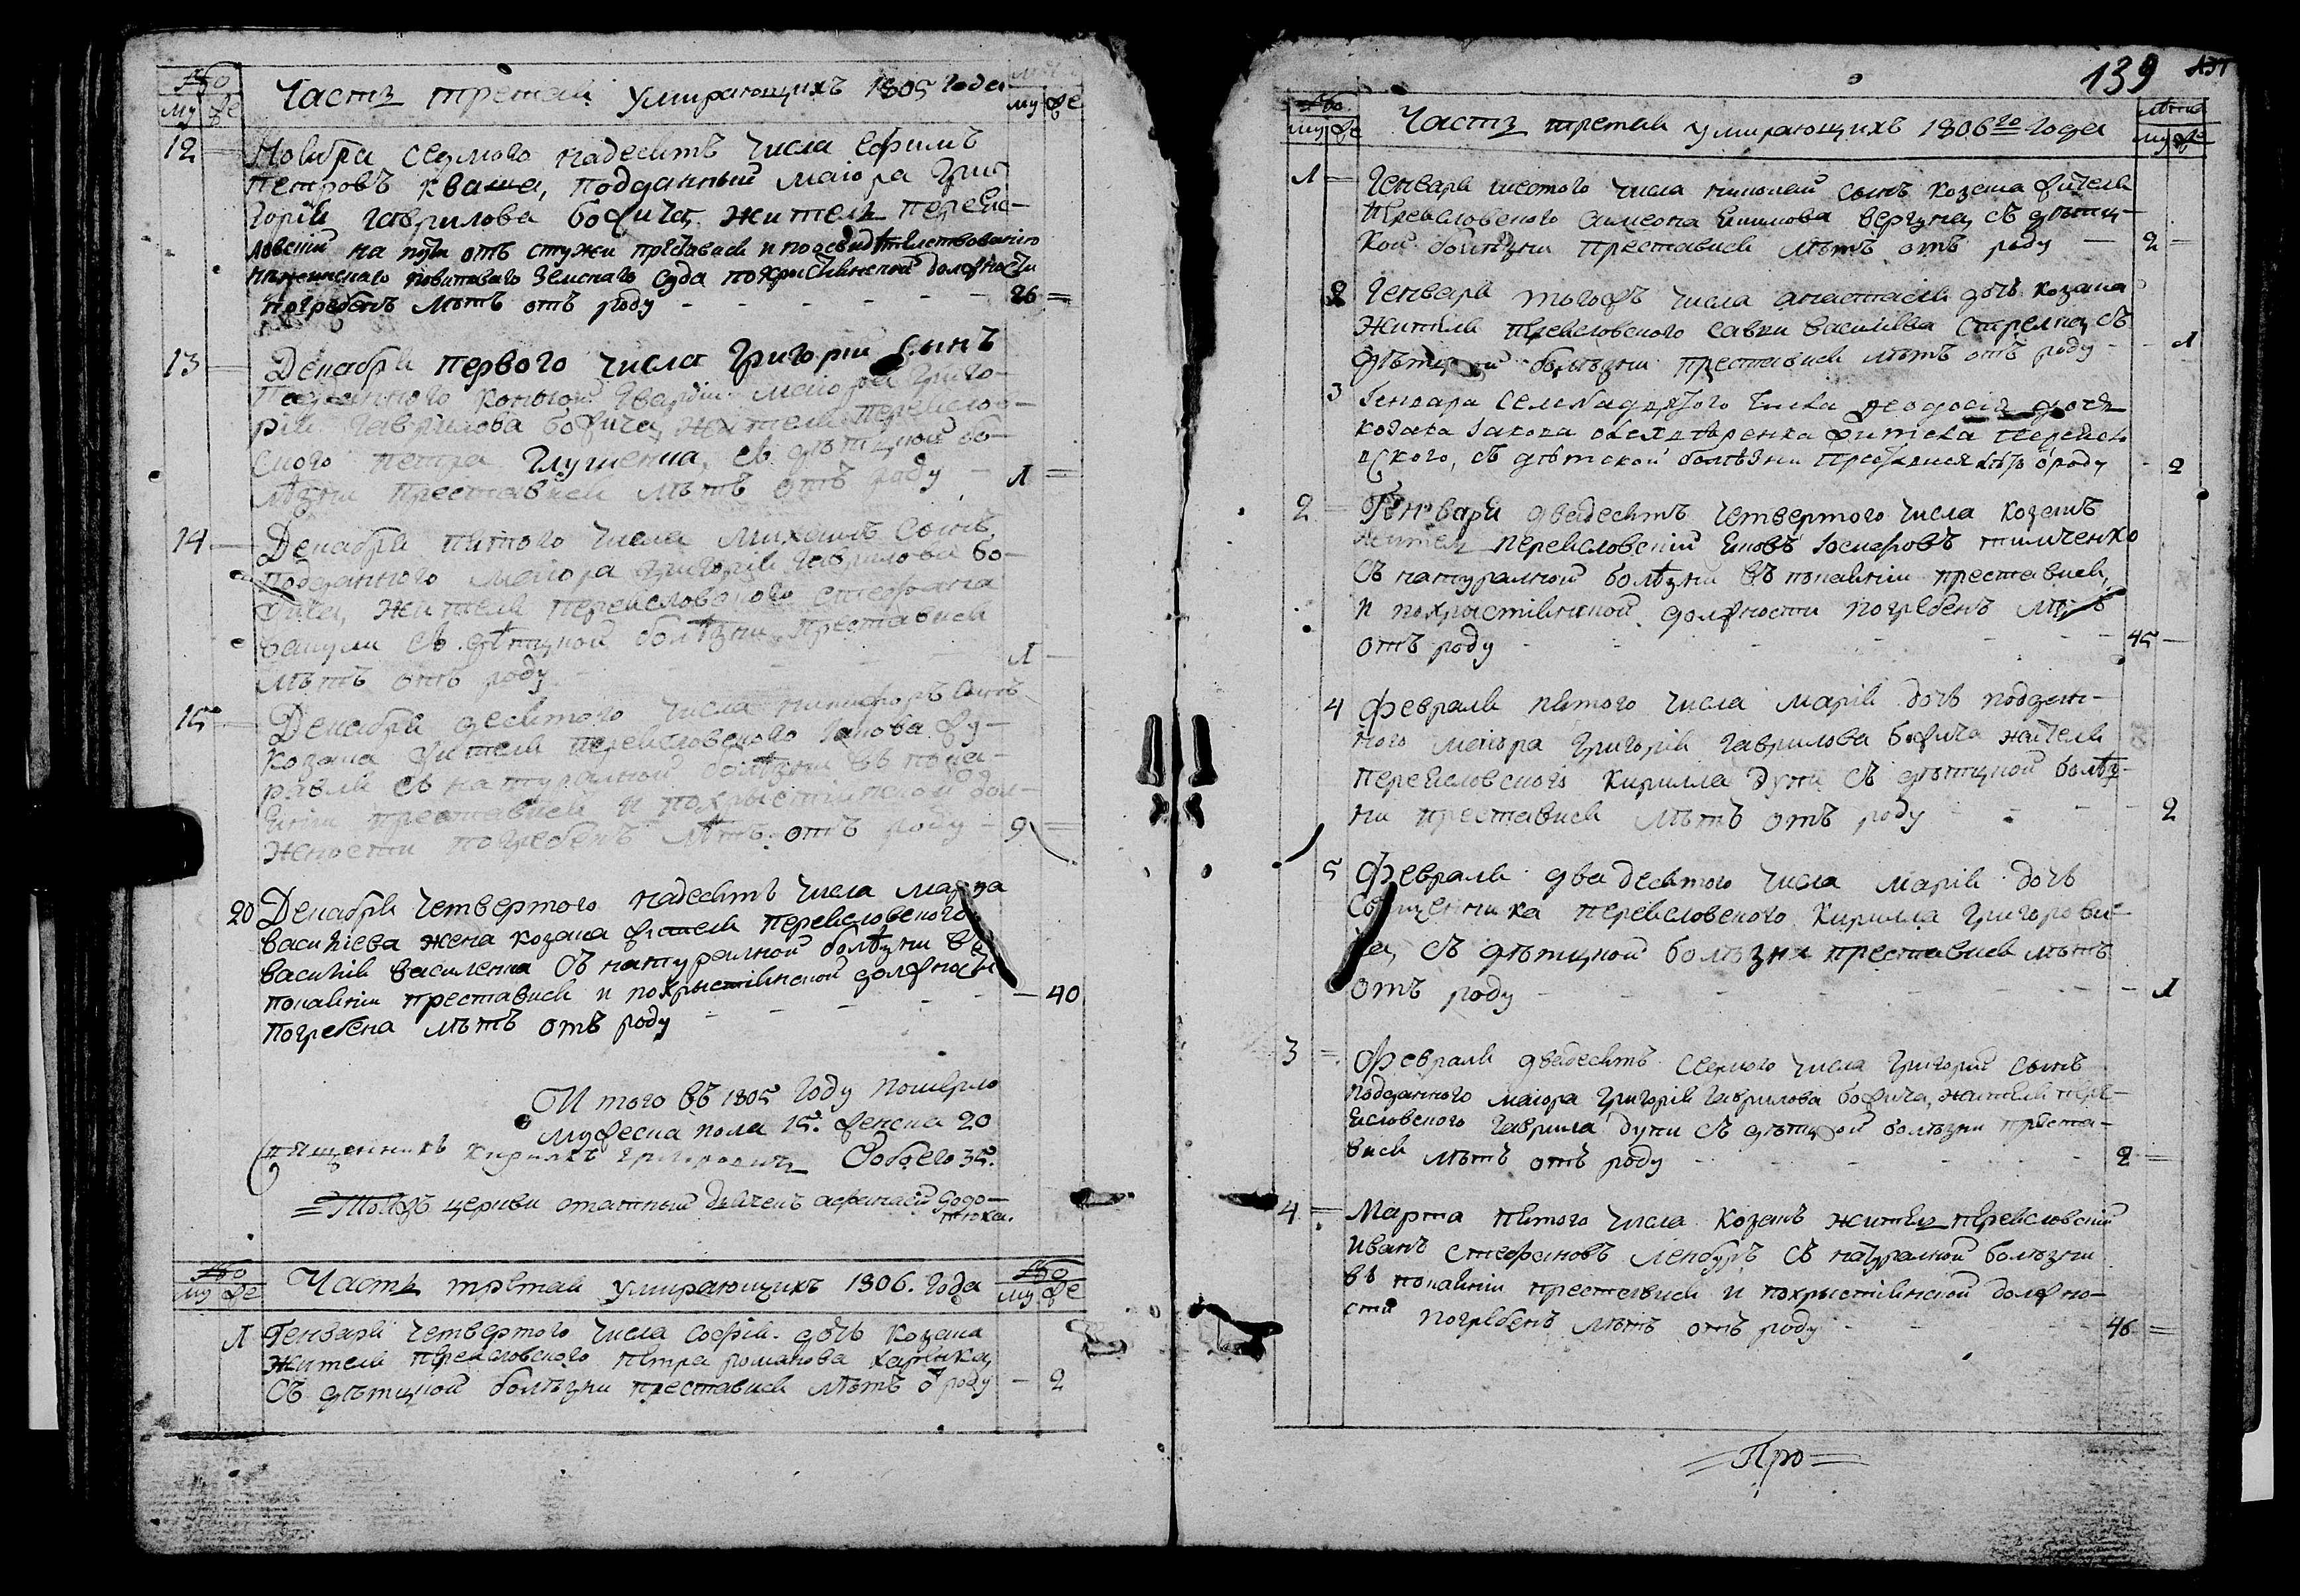 Часть третая умирающихъ 1805 года
му же
му же
12 Ноября седмого надесять числа Ефимъ
Петровъ Кваша, подданный маіора Гри-
горія Гаврилова Божича, житель переяс-
ловскій на пути отъ стужи преставися и по освидѣтелствованію
повитоваго земскаго суда похристіянской должности
погребенъ лѣтъ отъ роду - 26
13 Декабря первого числа Григорій сынъ
подданного конной гвардіи маіора Григо-
рія Гаврилова Божича, жителя переясло-
ского Петра Глушенка, съ дѣтцкой бо-
лѣзни преставися лѣтъ отъ роду - 1
14 Декабря пятого числа Михаилъ сынъ
подданного маіора Григорія Гаврилова Бо-
жича, жителя переясловского Стефана
съ дѣтцкой болѣзни преставися
лѣтъ отъ роду 1
15 Декабря десятого числа Никифоръ сынъ
козака жителя переясловского Іакова Жу-
равля съ натуралной болѣзни въ пока-
яніи преставися и похрыстіянской дол-
жности погребенъ лѣтъ отъ роду - 9
20 Декабря четвертого надесять числа Марѳа
Василіева жена козака жителя переясловского
Василія Василенка съ натуралной болѣзни въ
покаяніи преставися и похрыстіянской должности
погребена лѣтъ отъ роду - 40
Итого въ 1805 году померло
мужеска пола 15. женска 20
Обоего 35.
священникъ Кириллъ Григоровичъ
Тоижъ церкви статный дьячекъ Афанасій
Часть третая умирающихъ 1806. года
му же
му же
1 Генваря четвертого числа Софія дочь козака
жителя переясловского Петра Романова
съ дѣтцкой болѣзни преставися лѣтъ о роду - 2
139
Часть третая умирающихъ 1806го года
му же
му же
1 Генваря шестого числа Николай сынъ козака жителя
переясловского Симеона Екимова Вергуна, съ дѣтц-
кой болѣзни преставися лѣтъ отъ роду - 2
2 Генваря тогожъ числа Анастасія дочь козака
жителя переясловского Савки Василіева Стрелца, съ
дѣтцкой болѣзни преставися лѣтъ отъ роду - 1
3 Генвара семнадцятого числа Феодосія дочь
козака Іакова жителя переясло
вского, съ дѣтской болѣзни преставися лѣтъ о роду - 2
2 Генваря двадесять четвертого числа козакъ
житель переясловскій Яковъ Іосифовъ Тимченко
съ натуралной болѣзни въ покаяніи преставися,
и похрыстіянской должности погребенъ лѣтъ
отъ роду - 45
4 Февраля пятого числа Марія дочь поддан-
ного маіора Григорія Гаврилова Божича жителя
переясловского Кирилла Дуки съ дѣтцкой болѣз-
ни преставися лѣтъ отъ роду - 2
5 Февраля двадесятого числа Марія дочь
священника переясловского Кирилла Григорови-
ча, съ дѣтцкой болѣзни преставися лѣтъ
отъ роду - 1
3 Февраля двадесять седмого числа Григорій сынъ
подданного маіора Григорія Гаврилова Божича, жителя пере-
ясловского Гаврила Дуки съ дѣтцкой болѣзни преста-
вися лѣтъ отъ роду - 2
4 Марта пятого числа козакъ житель переясловскій
Иванъ Стефановъ съ натуралной болѣзни
въ покаяніи преставися и похрыстіянской должно-
сти погребенъ лѣтъ отъ роду - 46
Про